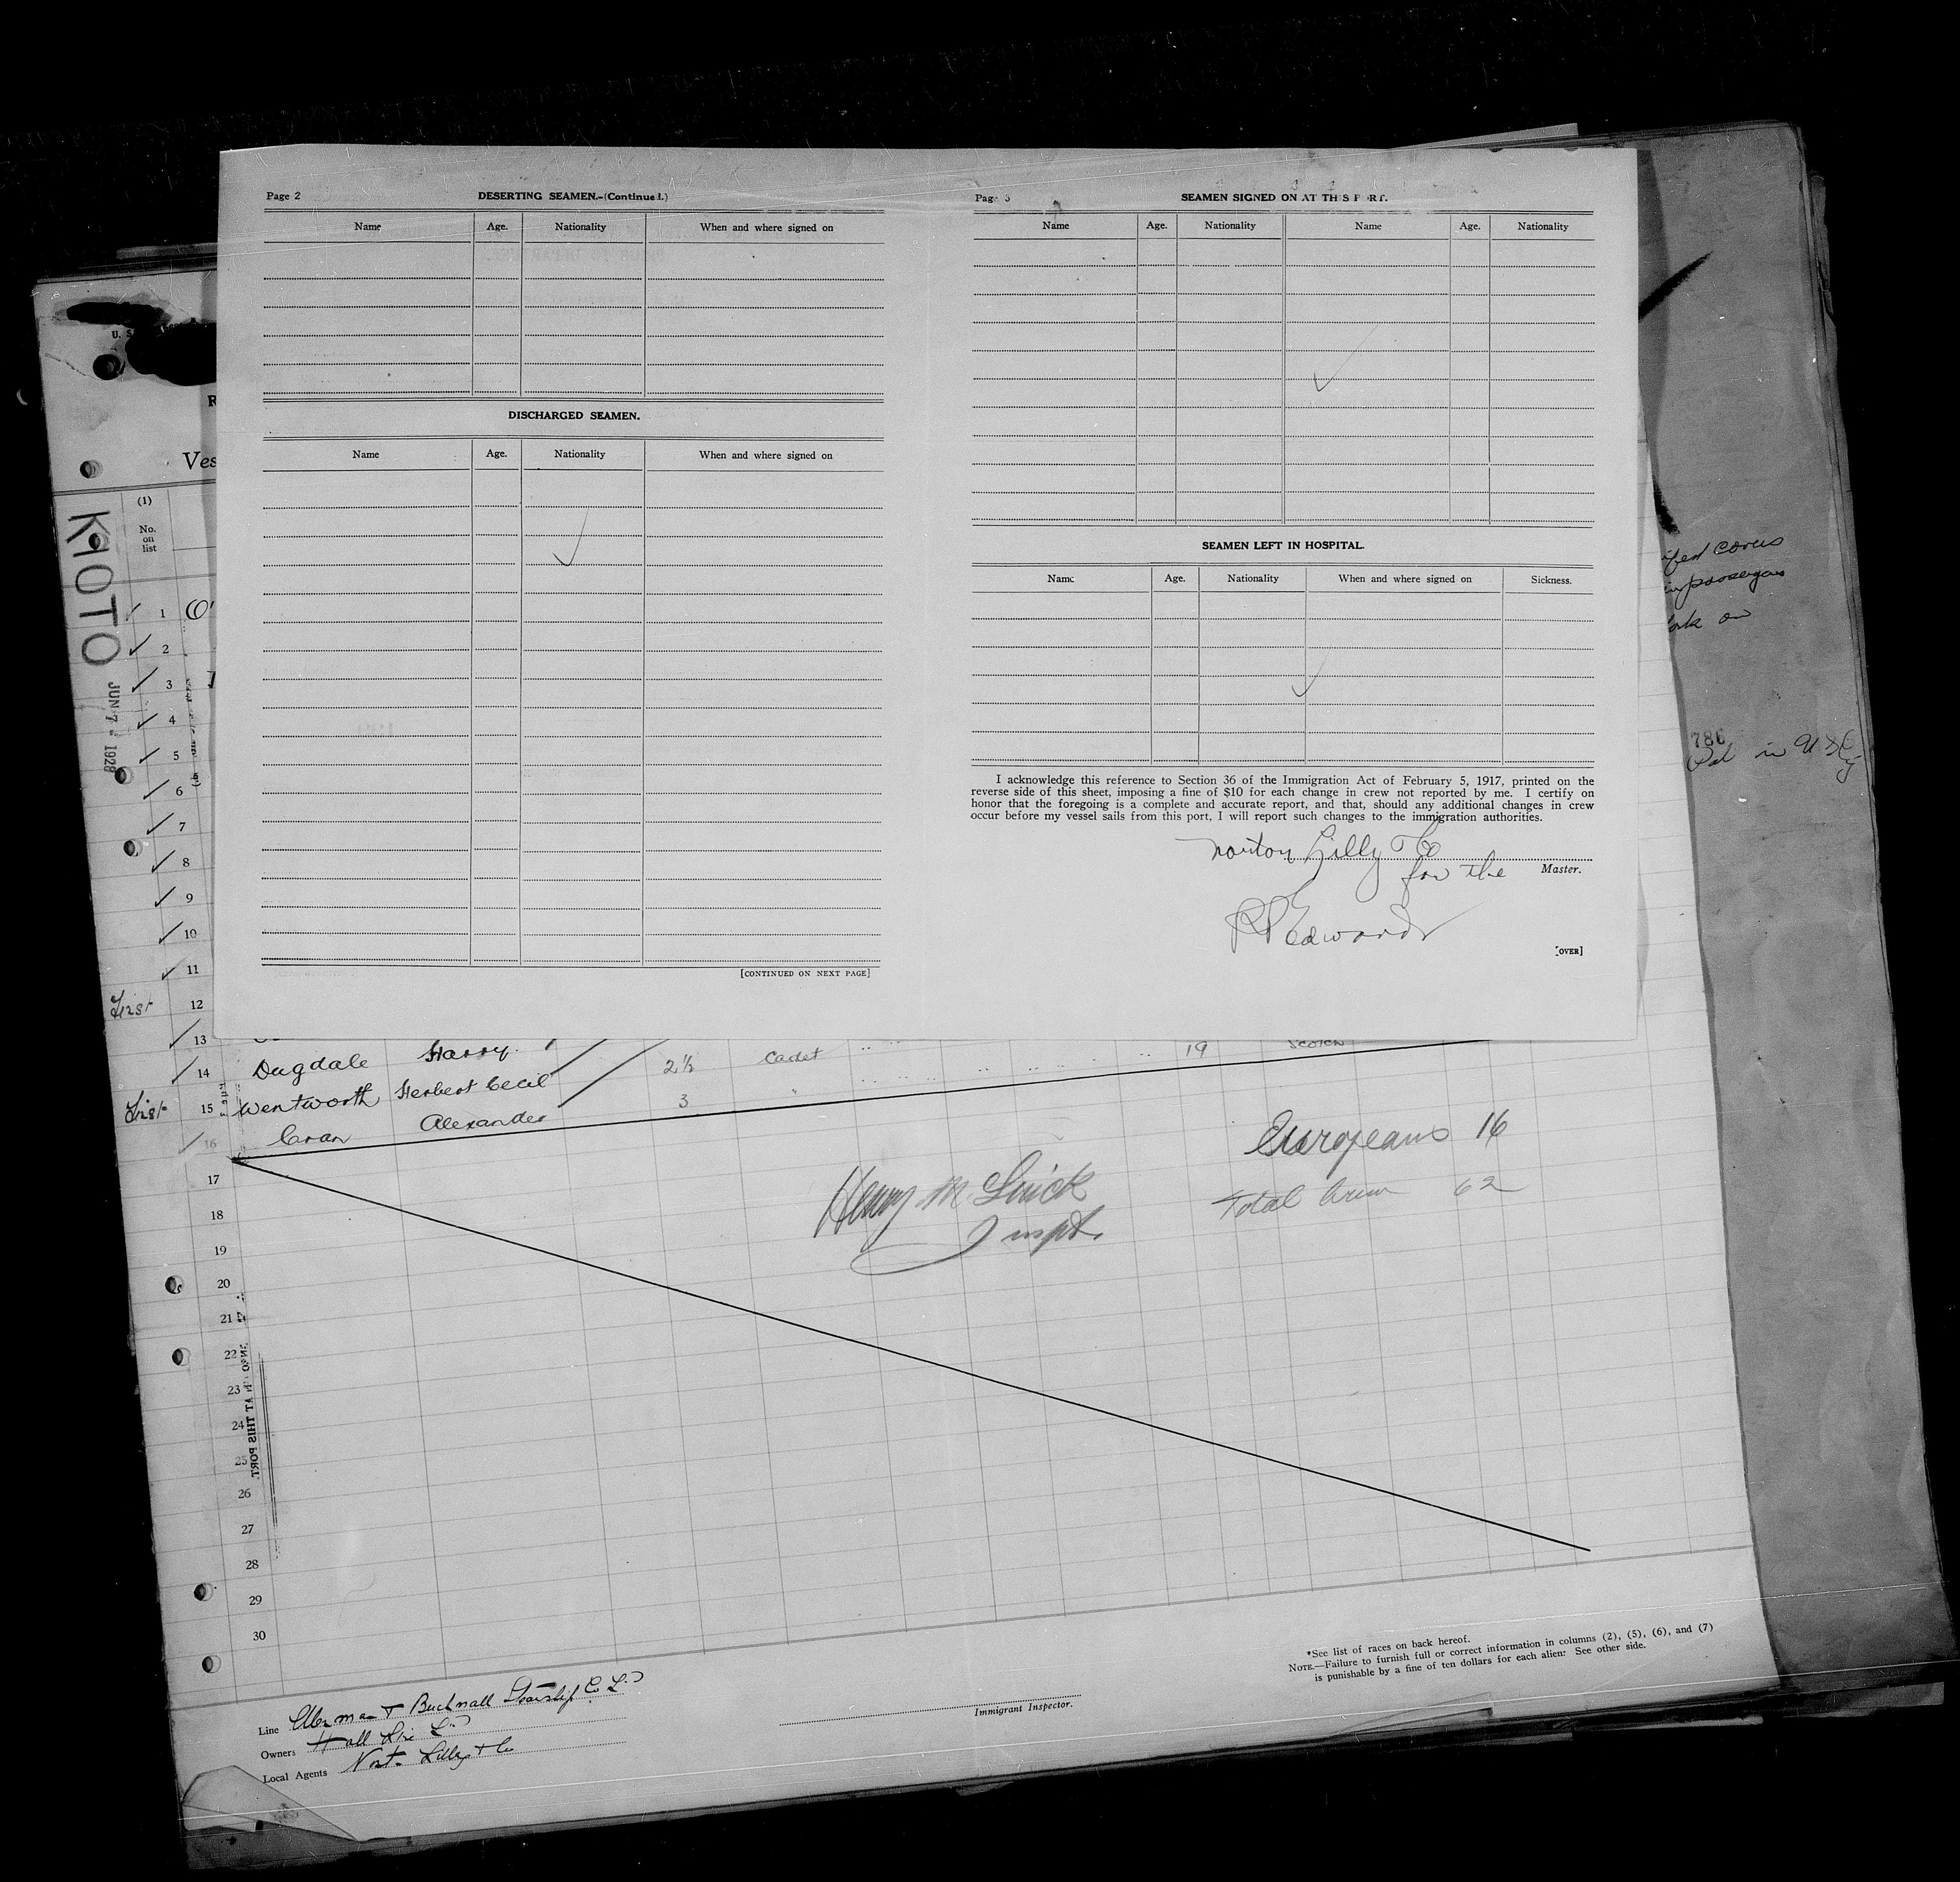 Page 2
DESERTING SEAMEN.-(Continued.)
Name Age. Nationality When and where signed on
DISCHARGED SEAMEN.
Name Age. Nationality When and where signed on
[CONTINUED ON NEXT PAGE]
Page 3
SEAMEN SIGNED ON AT THIS PORT.
Name Age. Nationality Name Age. Nationality
SEAMEN LEFT IN HOSPITAL.
Name Age. Nationality When and where signed on Sickness.
I acknowledge this reference to Section 36 of the Immigration Act of February 5, 1917, printed on the
reverse side of this sheet, imposing a fine of $10 for each change in crew not reported by me. I certify on
honor that the foregoing is a complete and accurate report, and that, should any additional changes in crew
occur before my vessel sails from this port, I will report such changes to the immigration authorities.
Norton Lilly & Co
for the Master.
RP Edwards
[OVER]
U. S.
Ves
KIOTO
JUN 7 - 1928
(1)
No.
on
list
1 O'
2
3
4
5
6
7
8
9
10
11
First 12
13
14 Dugdale Harry 2½ Cadet 19 Scotch
First 15 Wentworth Herbert Cecil 3
16 Cran Alexander
17
18
19
20
21
22
23
24
25
26
27
28
29
30
Europeans 16
Total Crew 62
Henry M
Inspt.
covers
passengers
on
786
in
AT THIS PORT.
*See list of races on back hereof.
NOTE.—Failure to furnish full or correct information in columns (2), (5), (6), and (7)
is punishable by a fine of ten dollars for each alien. See other side.
Immigrant Inspector.
Line Ellerman & Bucknall Steamship Co Ld
Owners Hall Line Ld
Local Agents Norton Lilly & Co